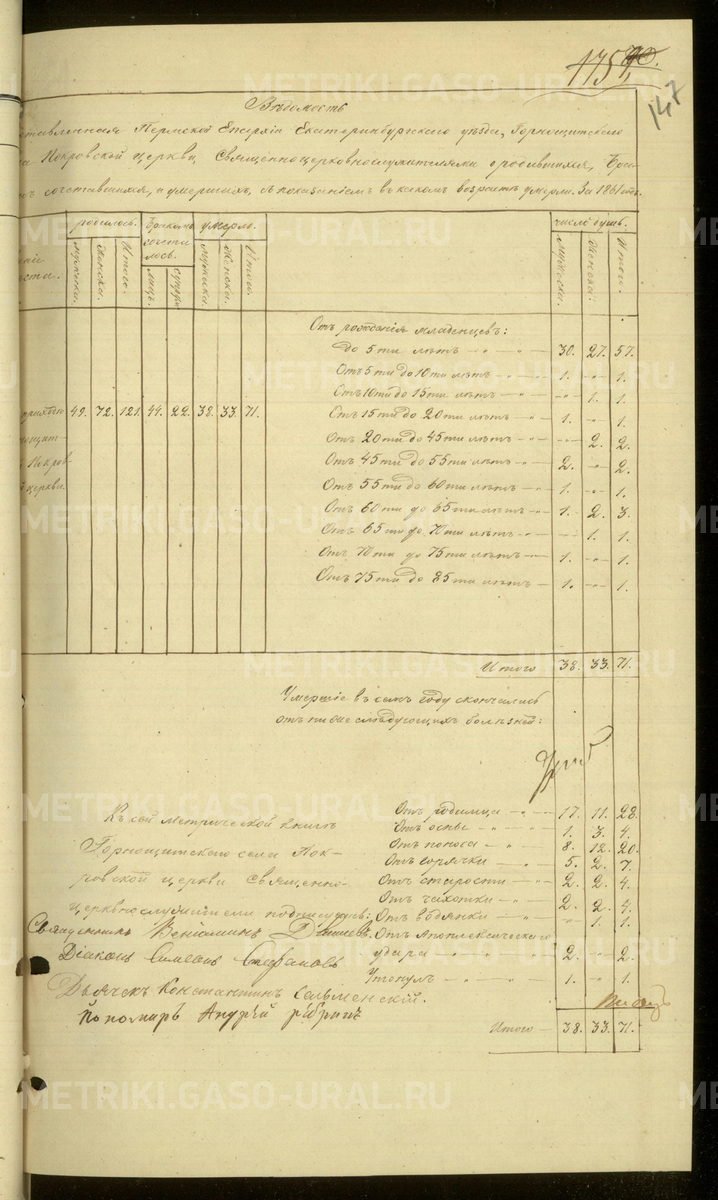 175
147
Вѣдомость
ставленная Пермской Епархіи Екатеринбургскаго уѣзда, Горнощитскаго
Покровской церкви, Священноцерковнослужителями о родившихся, Бра-
сочетавшихся, и умершихъ, съ показаніемъ въ какомъ возрастѣ умерли. За 1861 годъ.
родилось. Бракомъ сочеталось. умерло. число душъ.
мужеска. Женска. Итого. лицъ. супру мужеска. Женска. Итого. мужеска. Женска. Итого.
Отъ рожденія младенцевъ:
до 5ти лѣтъ 30. 27. 57.
Отъ 5ти до 10ти лѣтъ 1. " 1.
Отъ 10ти до 15ти лѣтъ " 1. 1.
49. 72. 121. 44. 22. 38. 33. 71. Отъ 15ти до 20ти лѣтъ 1. " 1.
Отъ 20ти до 45ти лѣтъ " 2. 2.
Отъ 45ти до 55ти лѣтъ 2. " 2.
церкви. Отъ 55ти до 60ти лѣтъ 1. " 1.
Отъ 60ти до 65ти лѣтъ 1. 2. 3.
Отъ 65ти до 70ти лѣтъ " 1. 1.
Отъ 70ти до 75ти лѣтъ 1. " 1.
Отъ 75ти до 85ти лѣтъ 1. " 1.
Итого 38. 33. 71.
Умершіе въ семъ году скончались
отъ ниже слѣдующихъ болѣзней:
Отъ родимца 17. 11. 28.
Отъ оспы 1. 3. 4.
Отъ поноса 8. 12. 20.
Отъ горячки 5. 2. 7.
Отъ старости 2. 2. 4.
Отъ чахотки 2. 2. 4.
Отъ водянки " 1. 1.
Отъ Апоплексическаго
удара 2. " 2.
Утонулъ 1. " 1.
Итого 38. 33. 71.
Къ сей метрической книгѣ
Горнощитскаго села Пок-
ровской церкви Священно-
церковнослужители подписуемъ:
Священникъ Веніаминъ
Діаконъ Симеонъ Стефановъ
Дьячекъ Константинъ Сельменскій.
Пономарь Андрей
METRIKI.GASO-URAL.RU